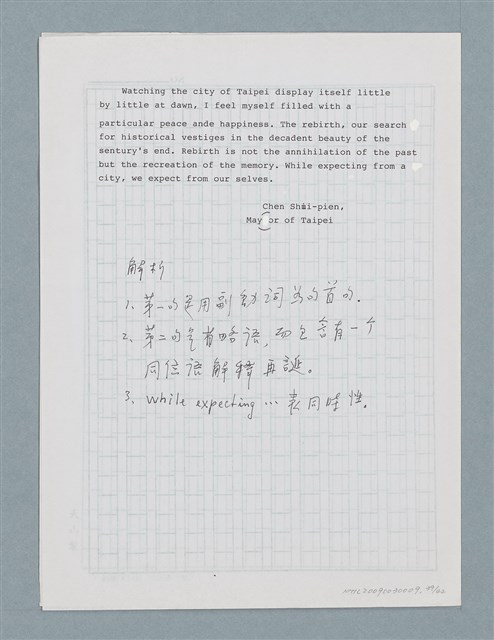 Watching the city of Taipei display itself little
by little at dawn, I feel myself filled with a
particular peace ande happiness. The rebirth, our search
for historical vestiges in the decadent beauty of the
sentury's end. Rebirth is not the annihilation of the past
but the recreation of the memory. While expecting from a
city, we expect from our selves.
Chen Shui-pien,
Mayor of Taipei
解析
1. 第一句是用副動詞為句首的.
2. 第二句是省略語, 而包含有一个
同位語解釋再誕。
3. While expecting … 表同時性.